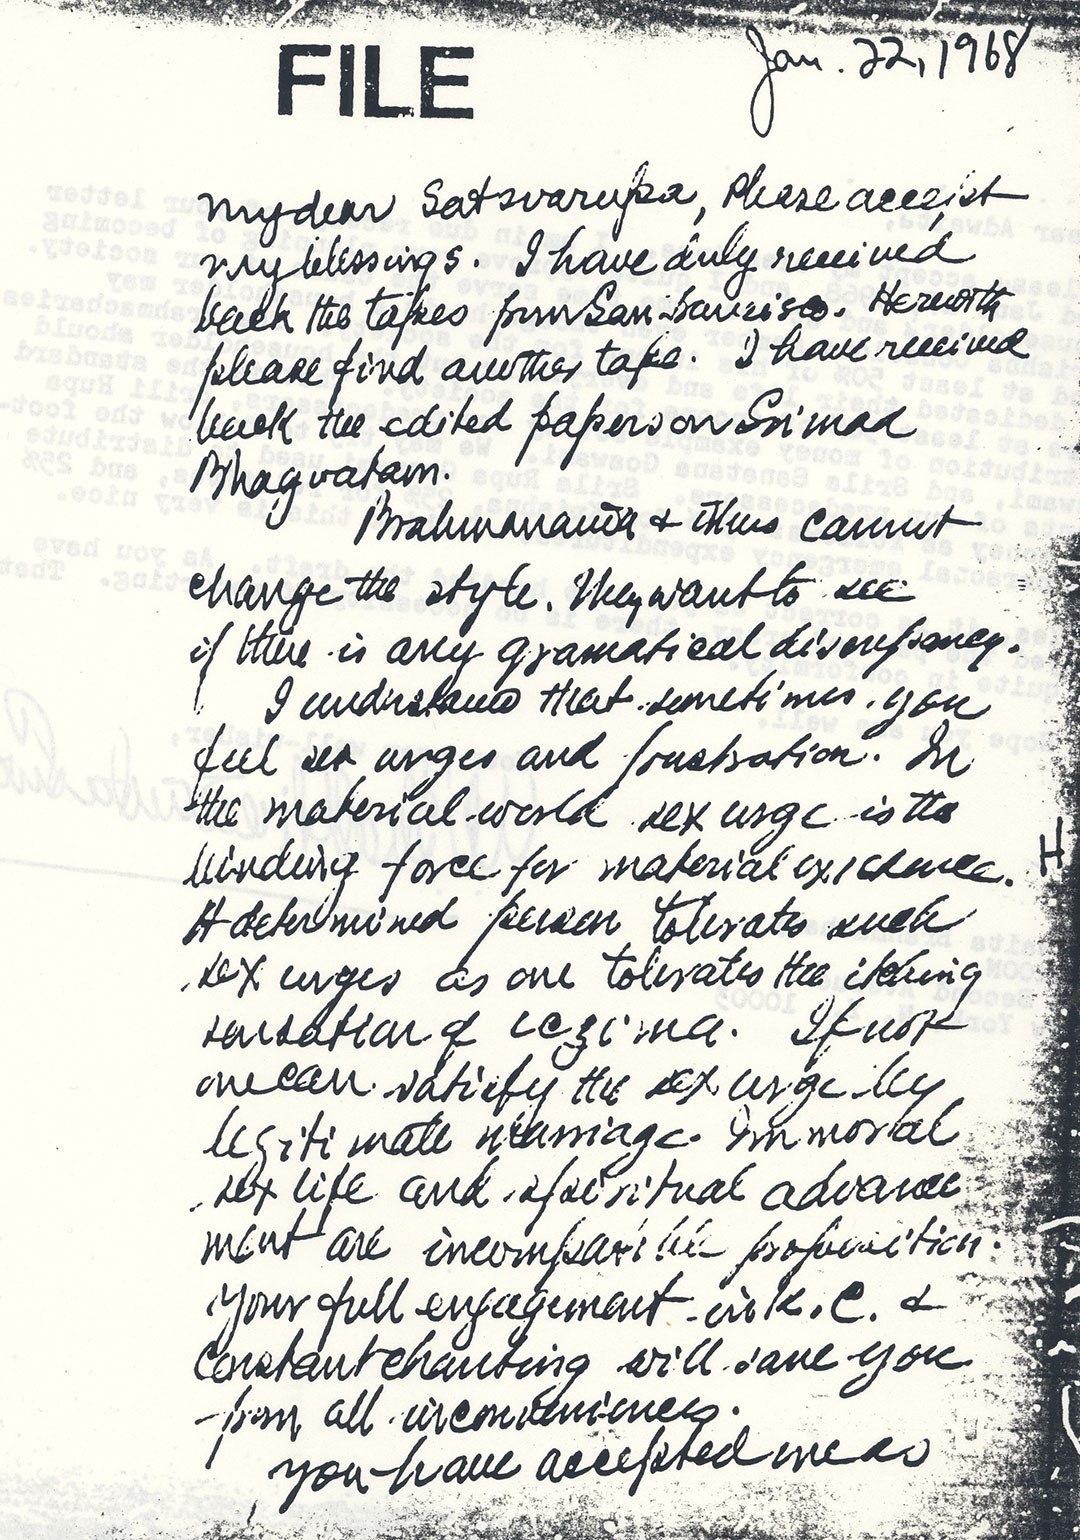 FILE
Jan. 22, 1968
My dear Satsvarupa, Please accept
my blessings. I have duly received
back the tapes from San Francisco. Herewith
please find another tape. I have received
back the edited papers on Srimad
Bhagvatam.
Brahmananda & others cannot
change the style. They want to see
if there is any gramatical discrepancy.
I understand that sometimes you
feel sex urges and frustration. In
the material world sex urge is the
binding force for material existence.
A determined person tolerates such
sex urges as one tolerates the itching
sensation of eczima. If not
one can satisfy the sex urge by
legitimate marriage. Immoral
sex life and spiritual advance
ment are incompatible proposition.
Your full engagement in K. C. &
constant chanting will save you
from all inconveniences.
You have accepted me as
H